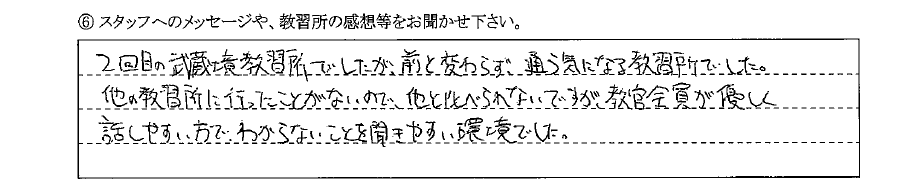 ⑥ スタッフへのメッセージや、教習所の感想等をお聞かせ下さい。
2回目の武蔵境教習所でしたが、前と変わらず、通う気になる教習所でした。
他の教習所に行ったことがないので、他と比べられないですが、教官全員が優しく
話しやすい方で、わからないことを聞きやすい環境でした。